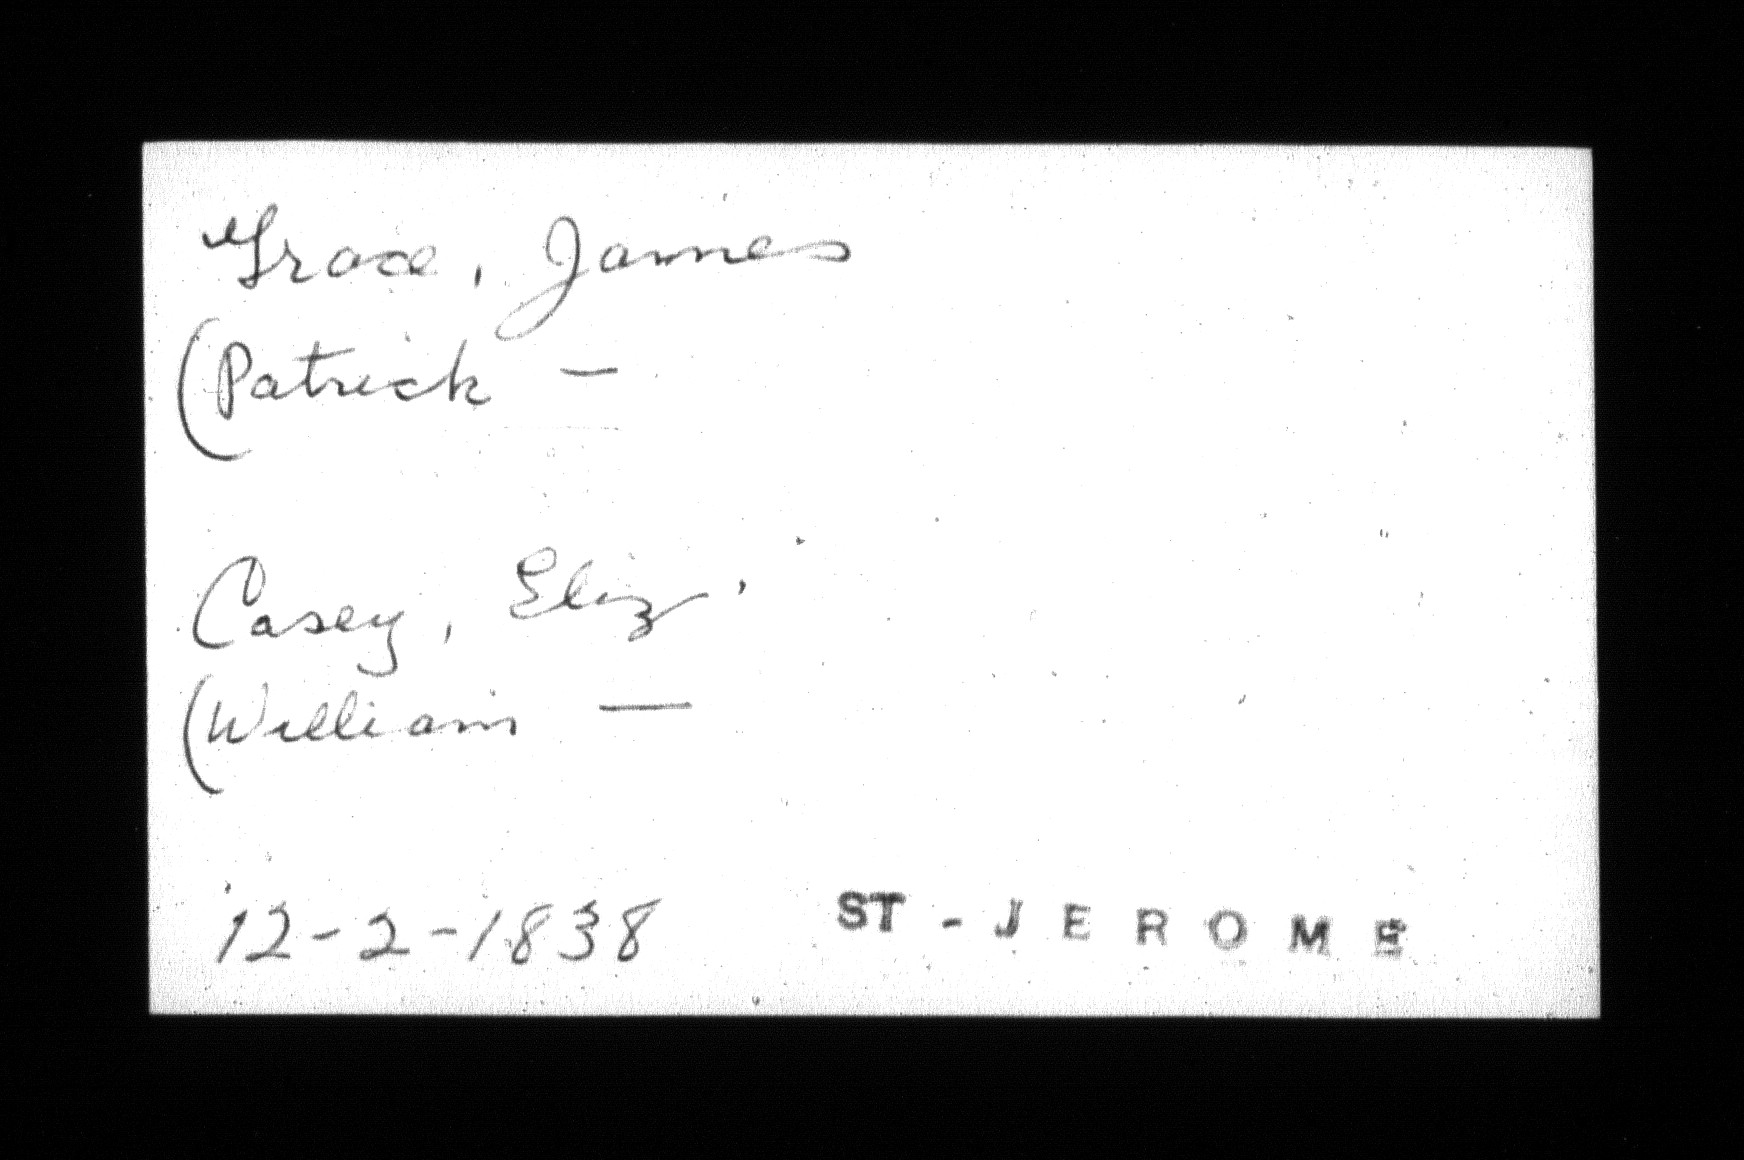 Grace, James
(Patrick —
Casey, Eliz.
(William —
12-2-1838 ST-JEROME